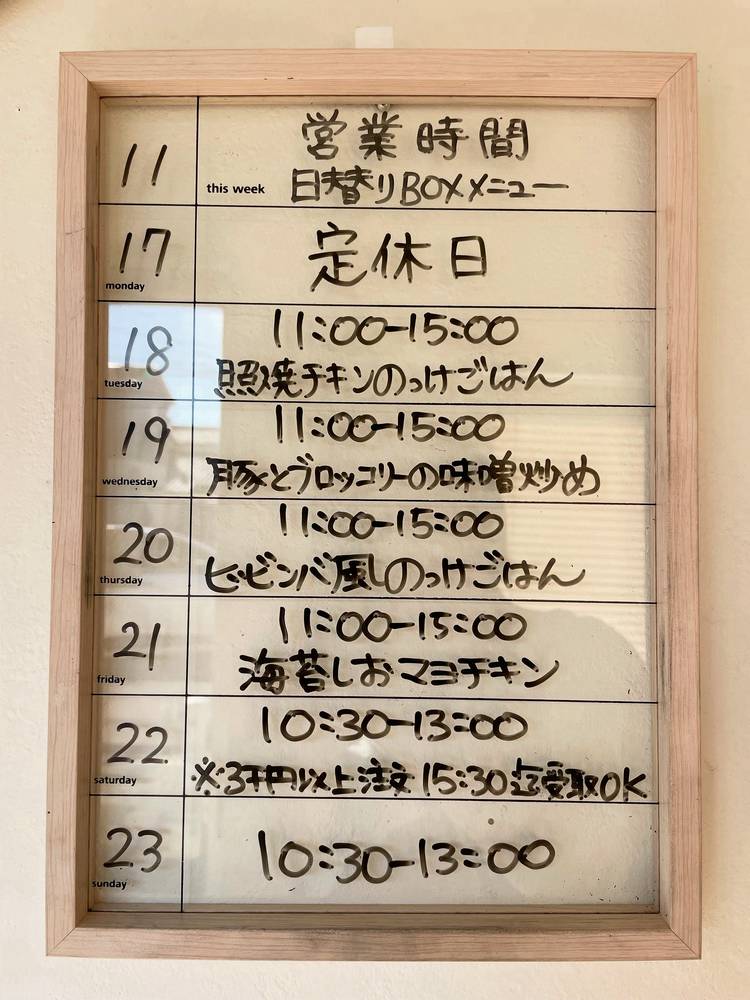 11
営業時間
this week
日替りBOXメニュー
17
monday
定休日
18
tuesday
11:00-15:00
照焼チキンのっけごはん
19
wednesday
11:00-15:00
豚とブロッコリーの味噌炒め
20
thursday
11:00-15:00
ビビンバ風しのっけごはん
21
friday
11:00-15:00
海苔しおマヨチキン
22
saturday
10:30-13:00
※3千円以上注文15:30迄受取OK
23
sunday
10:30-13:00